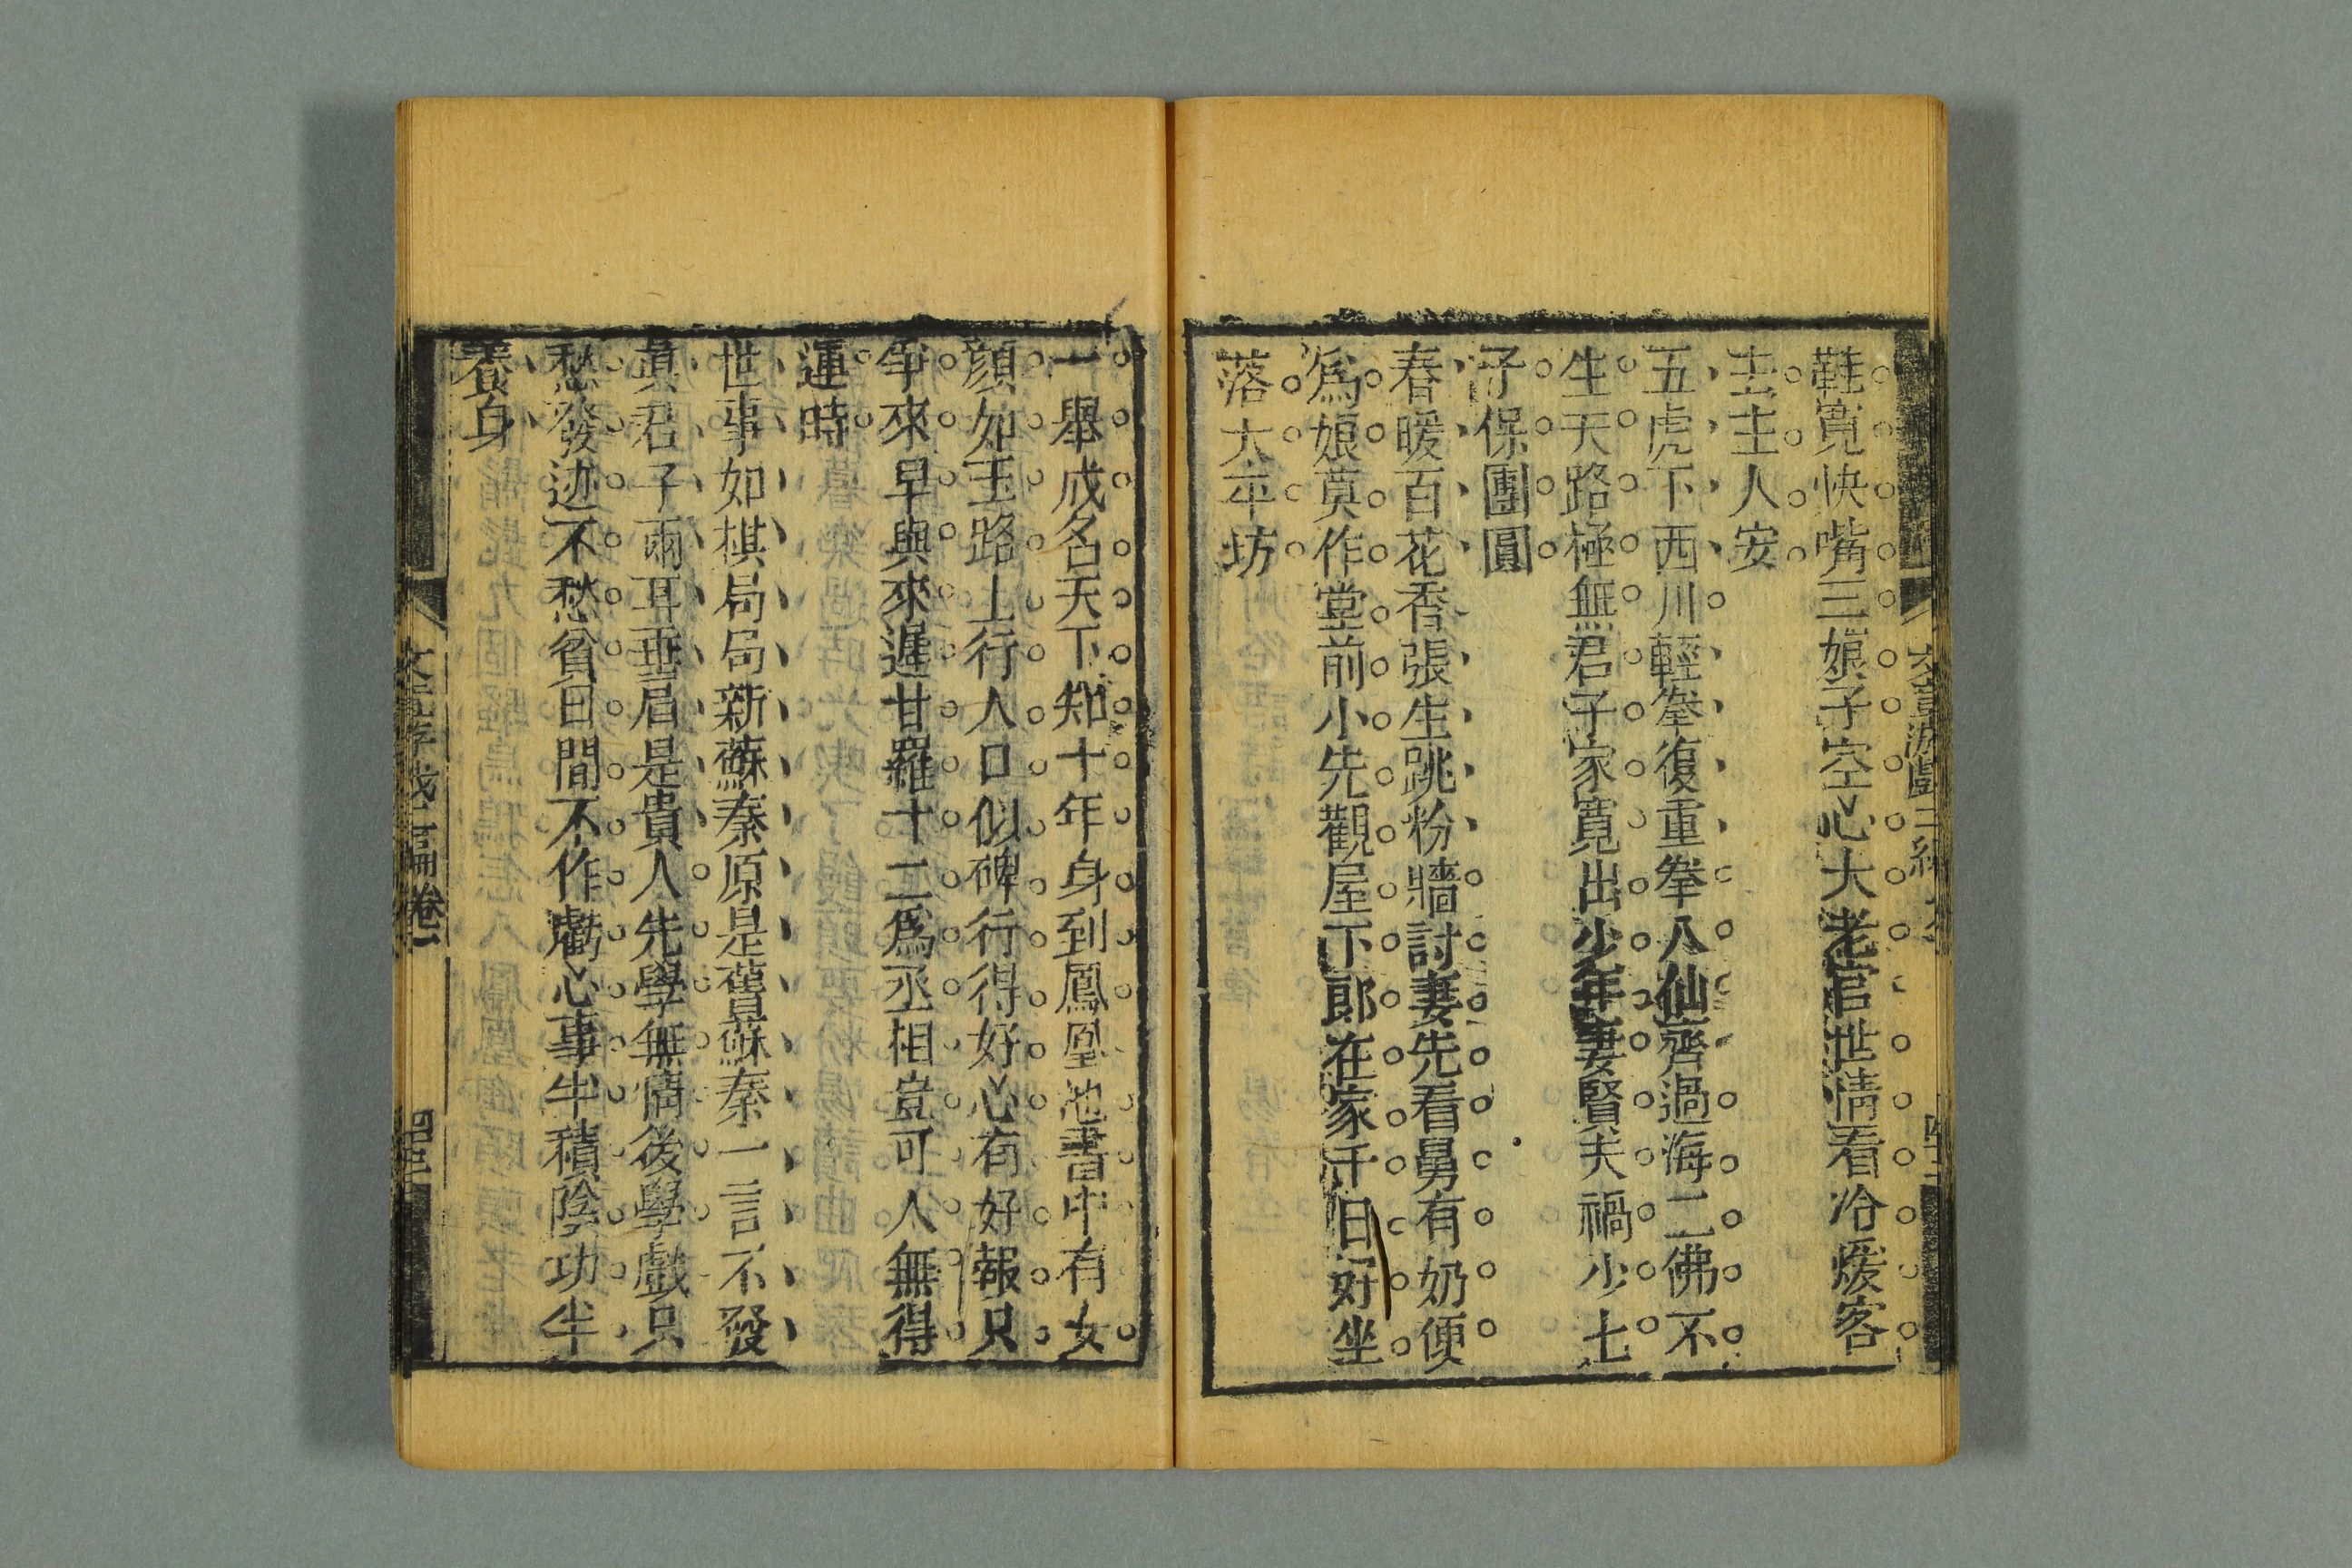 鞋寬快嘴三娘子空心大老官世情看冷煖客
去主人安
五虎下西川輕拳復重拳八仙齊過海二佛不
生天路極無君子家寬出少年妻賢夫禍少七
子保團圓
春暖百花香張生跳粉牆討妻先看舅有奶便
爲娘莫作堂前小先觀屋下郎在家千日好坐
落大平坊
一舉成名天下知十年身到鳳凰池書中有女
顔如玉路上行人口似碑行得好心有好報只
爭來早與來遲甘羅十二爲丞相豈可人無得
運時
世事如棋局局新蘇秦原是舊蘇秦一言不發
眞君子兩耳垂眉是貴人先學無情後學戲只
愁發迹不愁貧日間不作虧心事半積陰功半
養身
卷一
四三